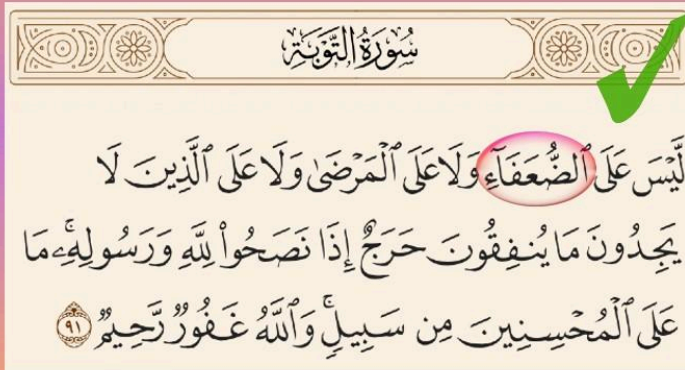 سُورَةُ التَّوۡبَةِ
لَّيۡسَ عَلَى ٱلضُّعَفَآءِ وَلَا عَلَى ٱلۡمَرۡضَىٰ وَلَا عَلَى ٱلَّذِينَ لَا
يَجِدُونَ مَا يُنفِقُونَ حَرَجٌ إِذَا نَصَحُواْ لِلَّهِ وَرَسُولِهِۦۚ مَا
عَلَى ٱلۡمُحۡسِنِينَ مِن سَبِيلٖۚ وَٱللَّهُ غَفُورٞ رَّحِيمٞ ٩١